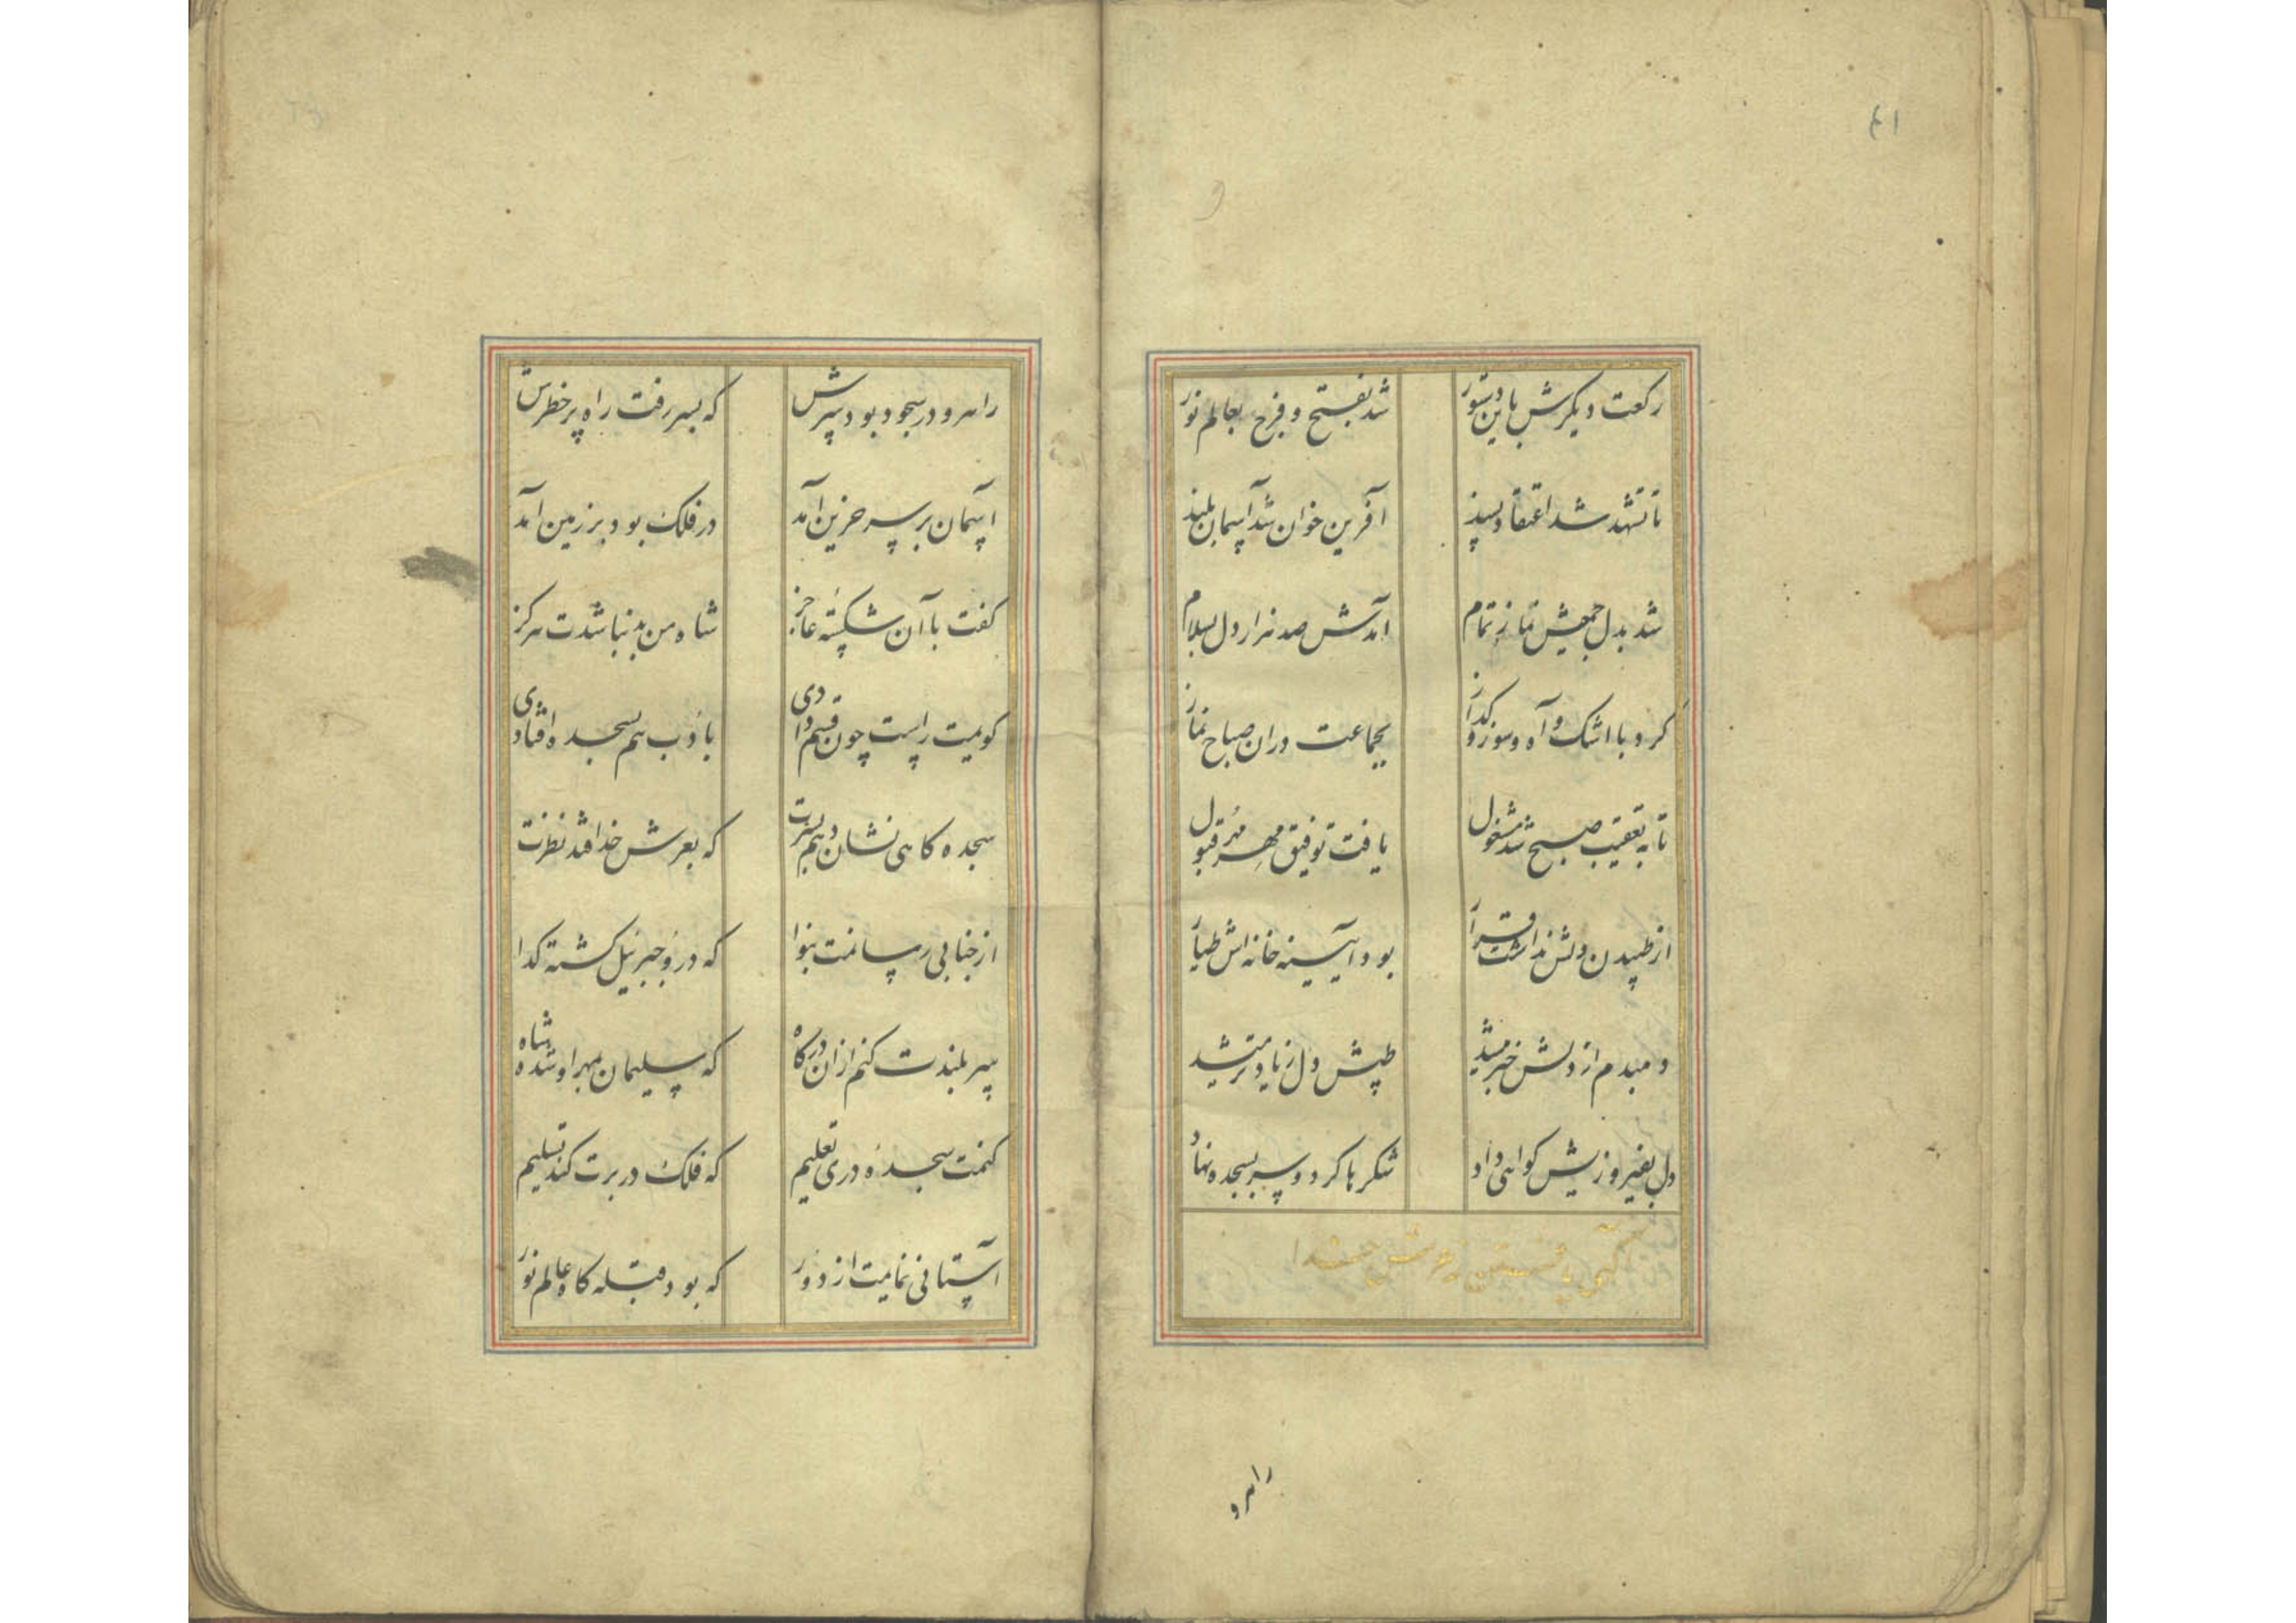 رکعت دیکرش باین دستور شد بفتح و فرح بعالم نور
تا تشهد شد اعتقاد پسند آفرین خوان شد آسمان بلند
شد بدل جمعیش نماز تمام آمدش صد هزار دل بسلام
کرد با اشک و آه و سوز و کداز بجماعت دران صباح نماز
تا به تعقیب صبح شد مشغول یافت توفیق مهر مهر قبول
از طپیدن دلش نداشت قرار بود آیینه خانه اش طیار
دمبدم از دلش خبر میشد طپش دل زیادتر میشد
دل بفیروزیش کواهی داد شکرها کرد و سر بسجده نهاد
آکهی یافتن ز عرش خدا
راهرو
راهرو در سجود بود سرش که بسر رفت راه پر خطرش
آسمان بر سر حزین آمد در فلک بود بر زمین آمد
کفت با آن شکسته عاجز شاه من بد نباشدت هرکز
کویمت راست چون قسم دادی با دب هم بسجده افتادی
سجده کاهی نشان دهم بسرت که بعرش خدا فتد نظرت
از جنابی رسانمت بنوا که درو جبرئیل کشته کدا
سر بلندت کنم ازان درکاه که سلیمان بمهر او شده شاه
کنمت سجدهٔ دری تعلیم که فلک در برت کند تسلیم
آستانی نمایمت از دور که بود قبله کاه عالم نور